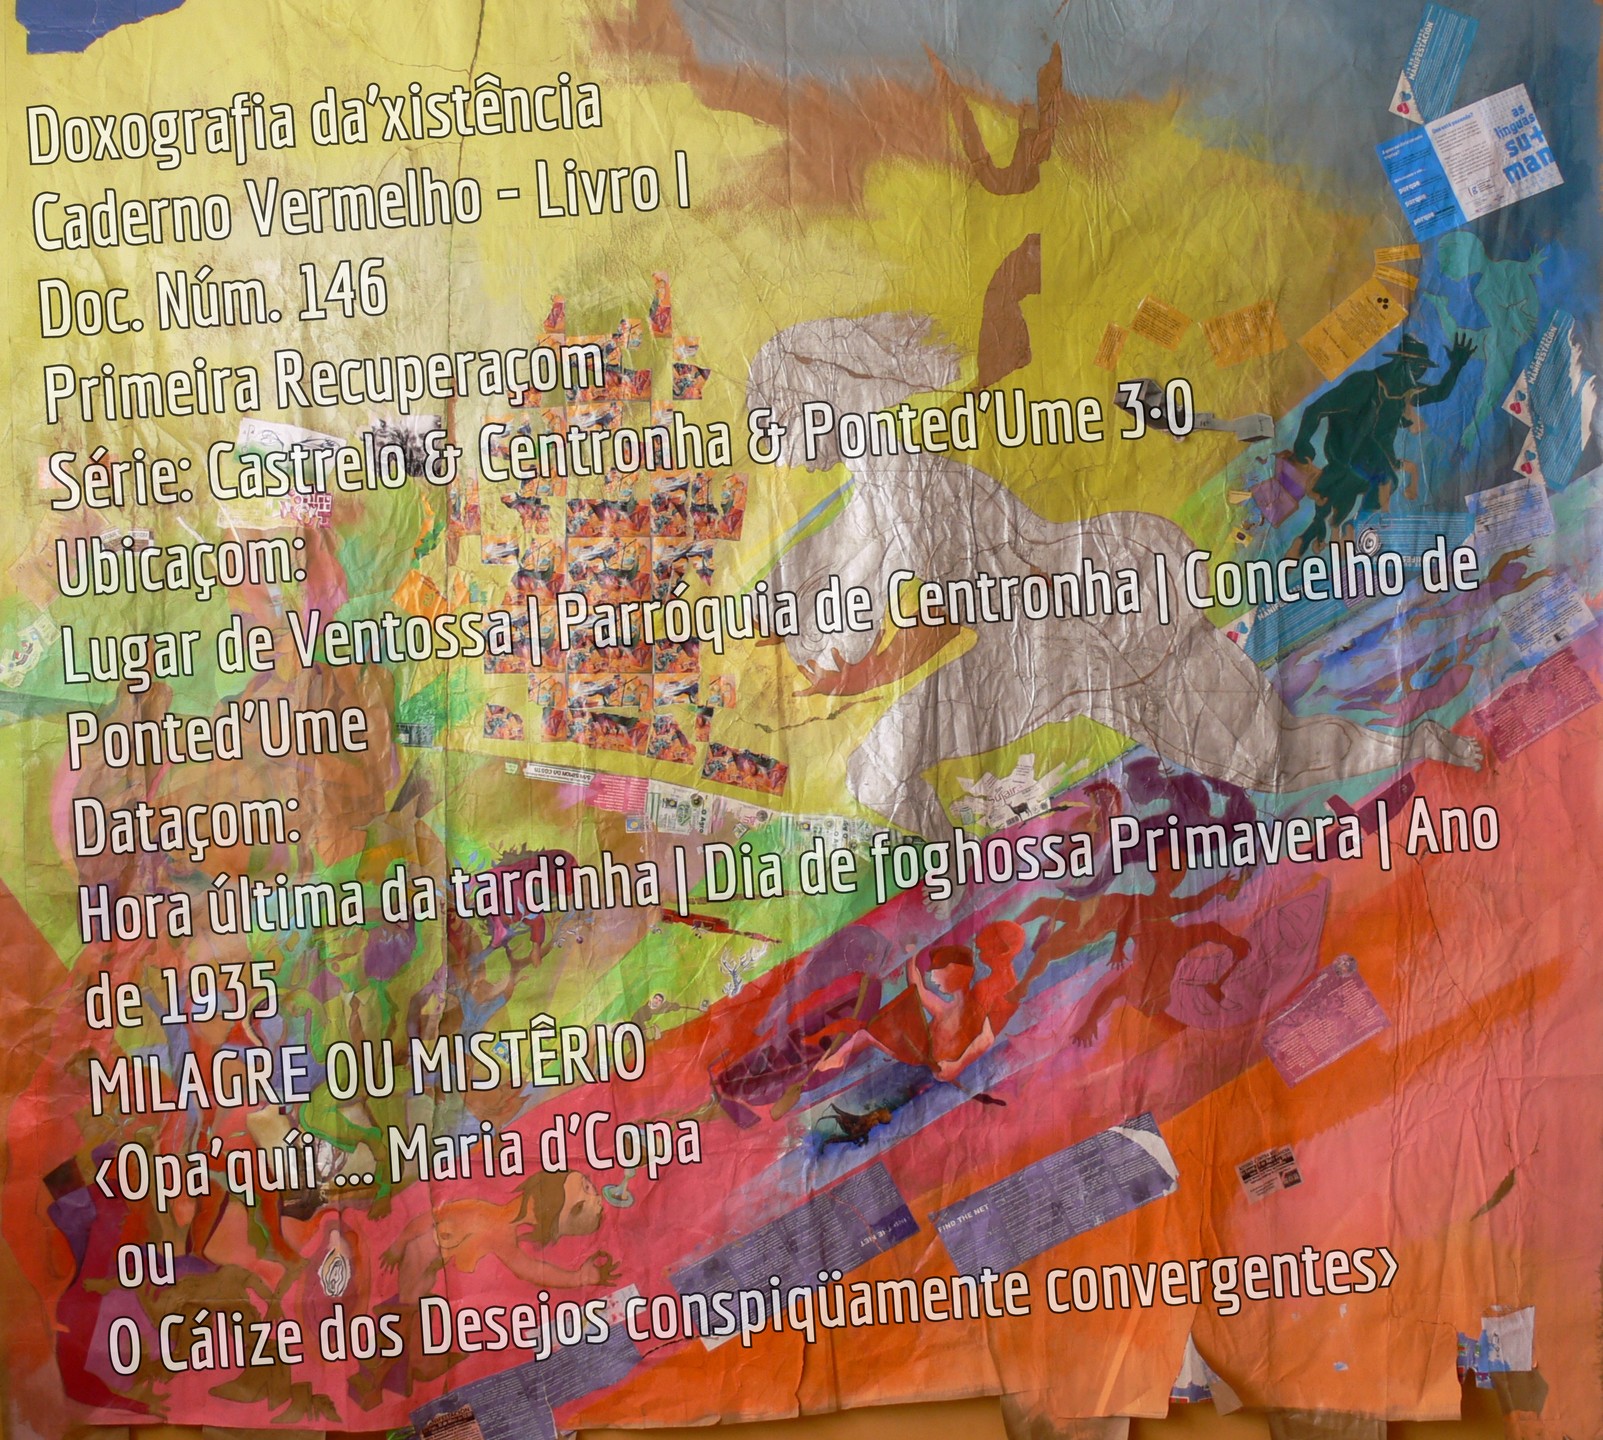 Doxografia da'xistência
Caderno Vermelho - Livro I
Doc. Núm. 146
Primeira Recuperaçom
Série: Castrelo & Centronha & Ponted'Ume 3·0
Ubicaçom:
Lugar de Ventossa | Parróquia de Centronha | Concelho de
Ponted'Ume
Dataçom:
Hora última da tardinha | Dia de foghossa Primavera | Ano
de 1935
MILAGRE OU MISTÊRIO
‹Opa'quíi ... Maria d'Copa
ou
O Cálize dos Desejos conspiqüamente convergentes›
MANIFESTACIÓN
as
línguas
su+
man
porque
porque
porque
FIND THE NET